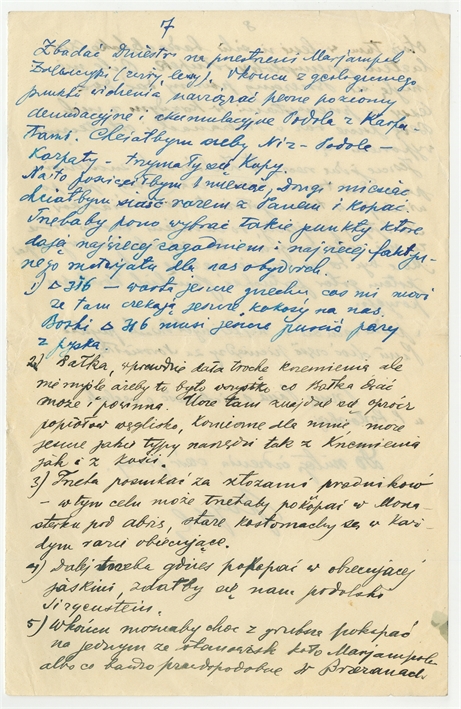 7
Zbadać Dniestr na przestrzeni Marjampol
(rzeczy, lessy). Wkońcu z geologicznego
punktu widzenia nawiązać pewne poziomy
denudacyjne i akumulacyjne Podola z Karpa-
tami. Chciałbym żeby Niż - Podole -
Karpaty - trzymały się kupy.
Na to poświęciłbym 1 miesiąc, drugi miesiąc
chciałbym siedzieć razem z Panem i kopać.
Trzebaby pono wybrać takie punkty które
dają najwięcej zagadnień i najwięcej faktycz-
nego materjału dla nas obydwóch.
1) △ 316 - warta jeszcze grzechu, coś mi mówi
że tam czekają jeszcze kokosy na nas.
Boski △ 316 musi jeszcze puścić parę
z pyska.
2) Łatka, wprawdzie dała trochę krzemienia ale
nie myślę ażeby to było wszystko co Łatka dać
może i powinna. Może tam znajdzie się oprócz
popiołów węglisko, konieczne dla mnie może
jeszcze jakieś typy narzędzi tak z krzemienia
jak i z kości.
3) Trzeba poszukać za złożami pradników
- w tym celu może trzebaby pokopać w Mona-
sterku pod abris, stare kostomachy są w każ-
dym razie obiecujące.
4) Dalej trzeba gdzieś pokopać w obiecującej
jaskini, zdałby się nam podolski
Sirgenstein.
5) Wkońcu możnaby choć z grubsza pokopać
na jednym ze stanowisk koło Marjampola
albo co bardzo prawdopodobne w Brzezanach